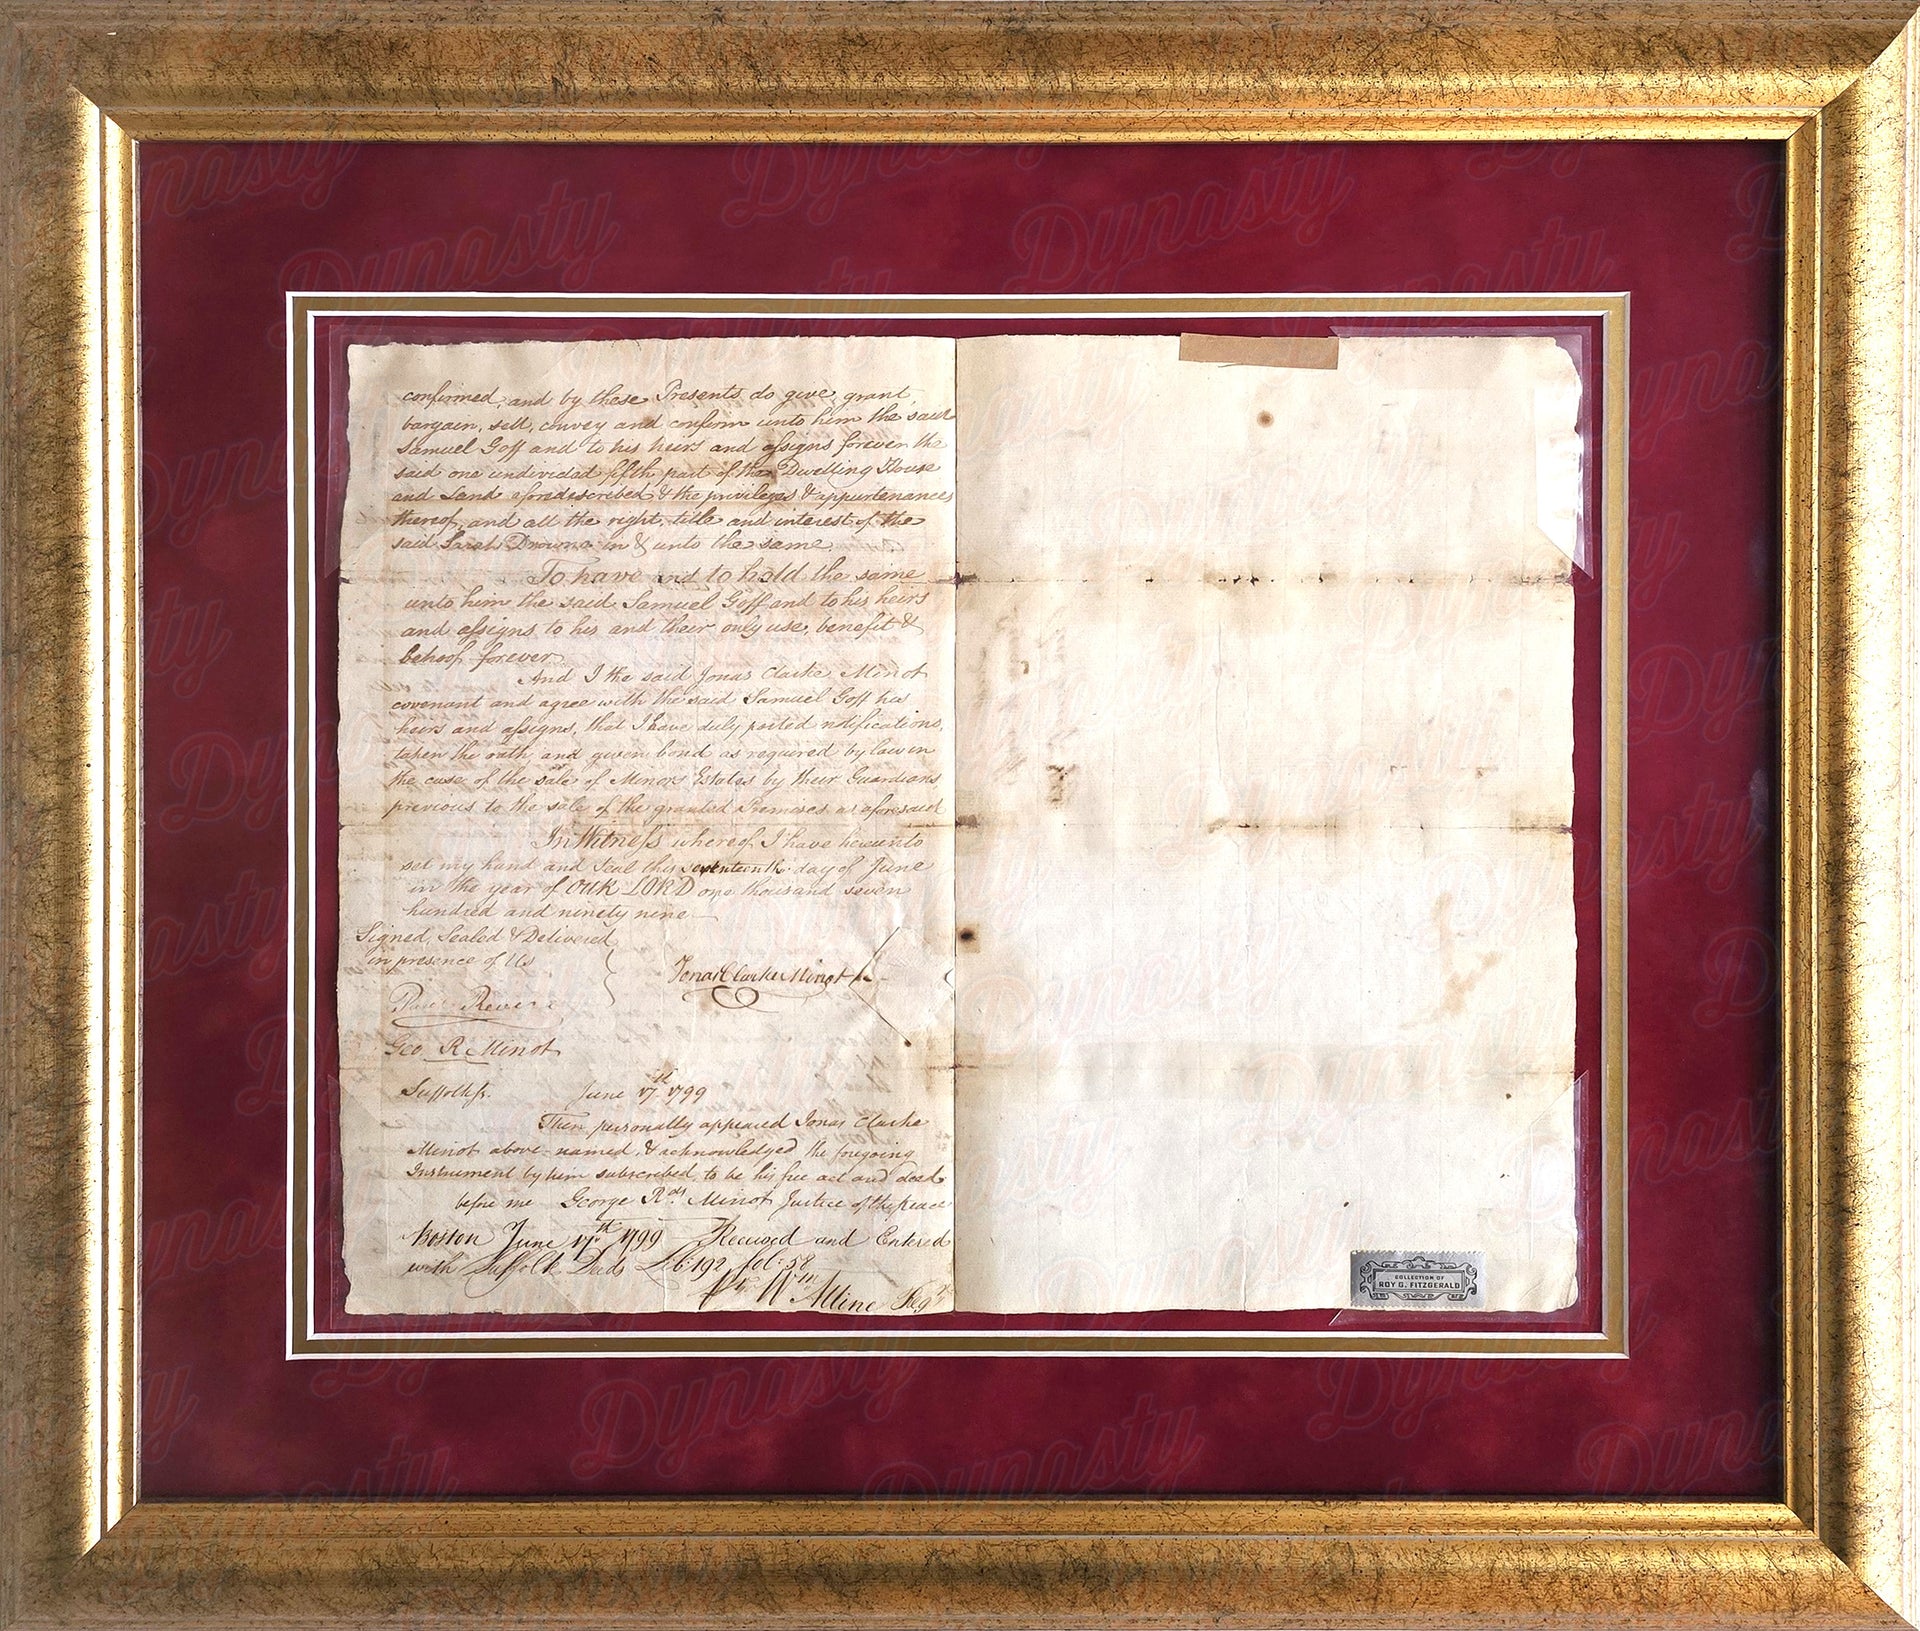 confirmed, and by these Presents do give, grant,
bargain, sell, convey and confirm unto him the said
Samuel Goff and to his heirs and assigns forever the
said one undivided fifth part of the Dwelling House
and Land aforedescribed & the privileges & appurtenances
thereof, and all the right, title and interest of the
said Sarah Drowne in & unto the same.
To have and to hold the same
unto him the said Samuel Goff and to his heirs
and assigns to his and their only use, benefit &
behoof forever
And I the said Jonas Clarke Minot
covenant and agree with the said Samuel Goff his
heirs and assigns, that I have duly posted notifications,
taken the oath, and given bond as required by law in
the case of the sale of Minors Estates by their Guardians
previous to the sale of the granted Premises as aforesaid
In Witness whereof I have hereunto
set my hand and Seal this seventeenth day of June
in the year of OUR LORD one thousand seven
hundred and ninety nine
Signed, Sealed & Delivered
in presence of Us
Jonas Clarke Minot
Paul Revere
Geo R Minot
Suffolk ss. June 17th 1799
Then personally appeared Jonas Clarke
Minot above-named, & acknowledged the foregoing
Instrument by him subscribed, to be his free act and deed
before me George Rds Minot Justice of the peace
Boston June 17th 1799 Received and Entered
with Suffolk Deeds Lib: 192 fol: 58
Wm Alline Regr
COLLECTION OF
ROY G. FITZGERALD
Dynasty